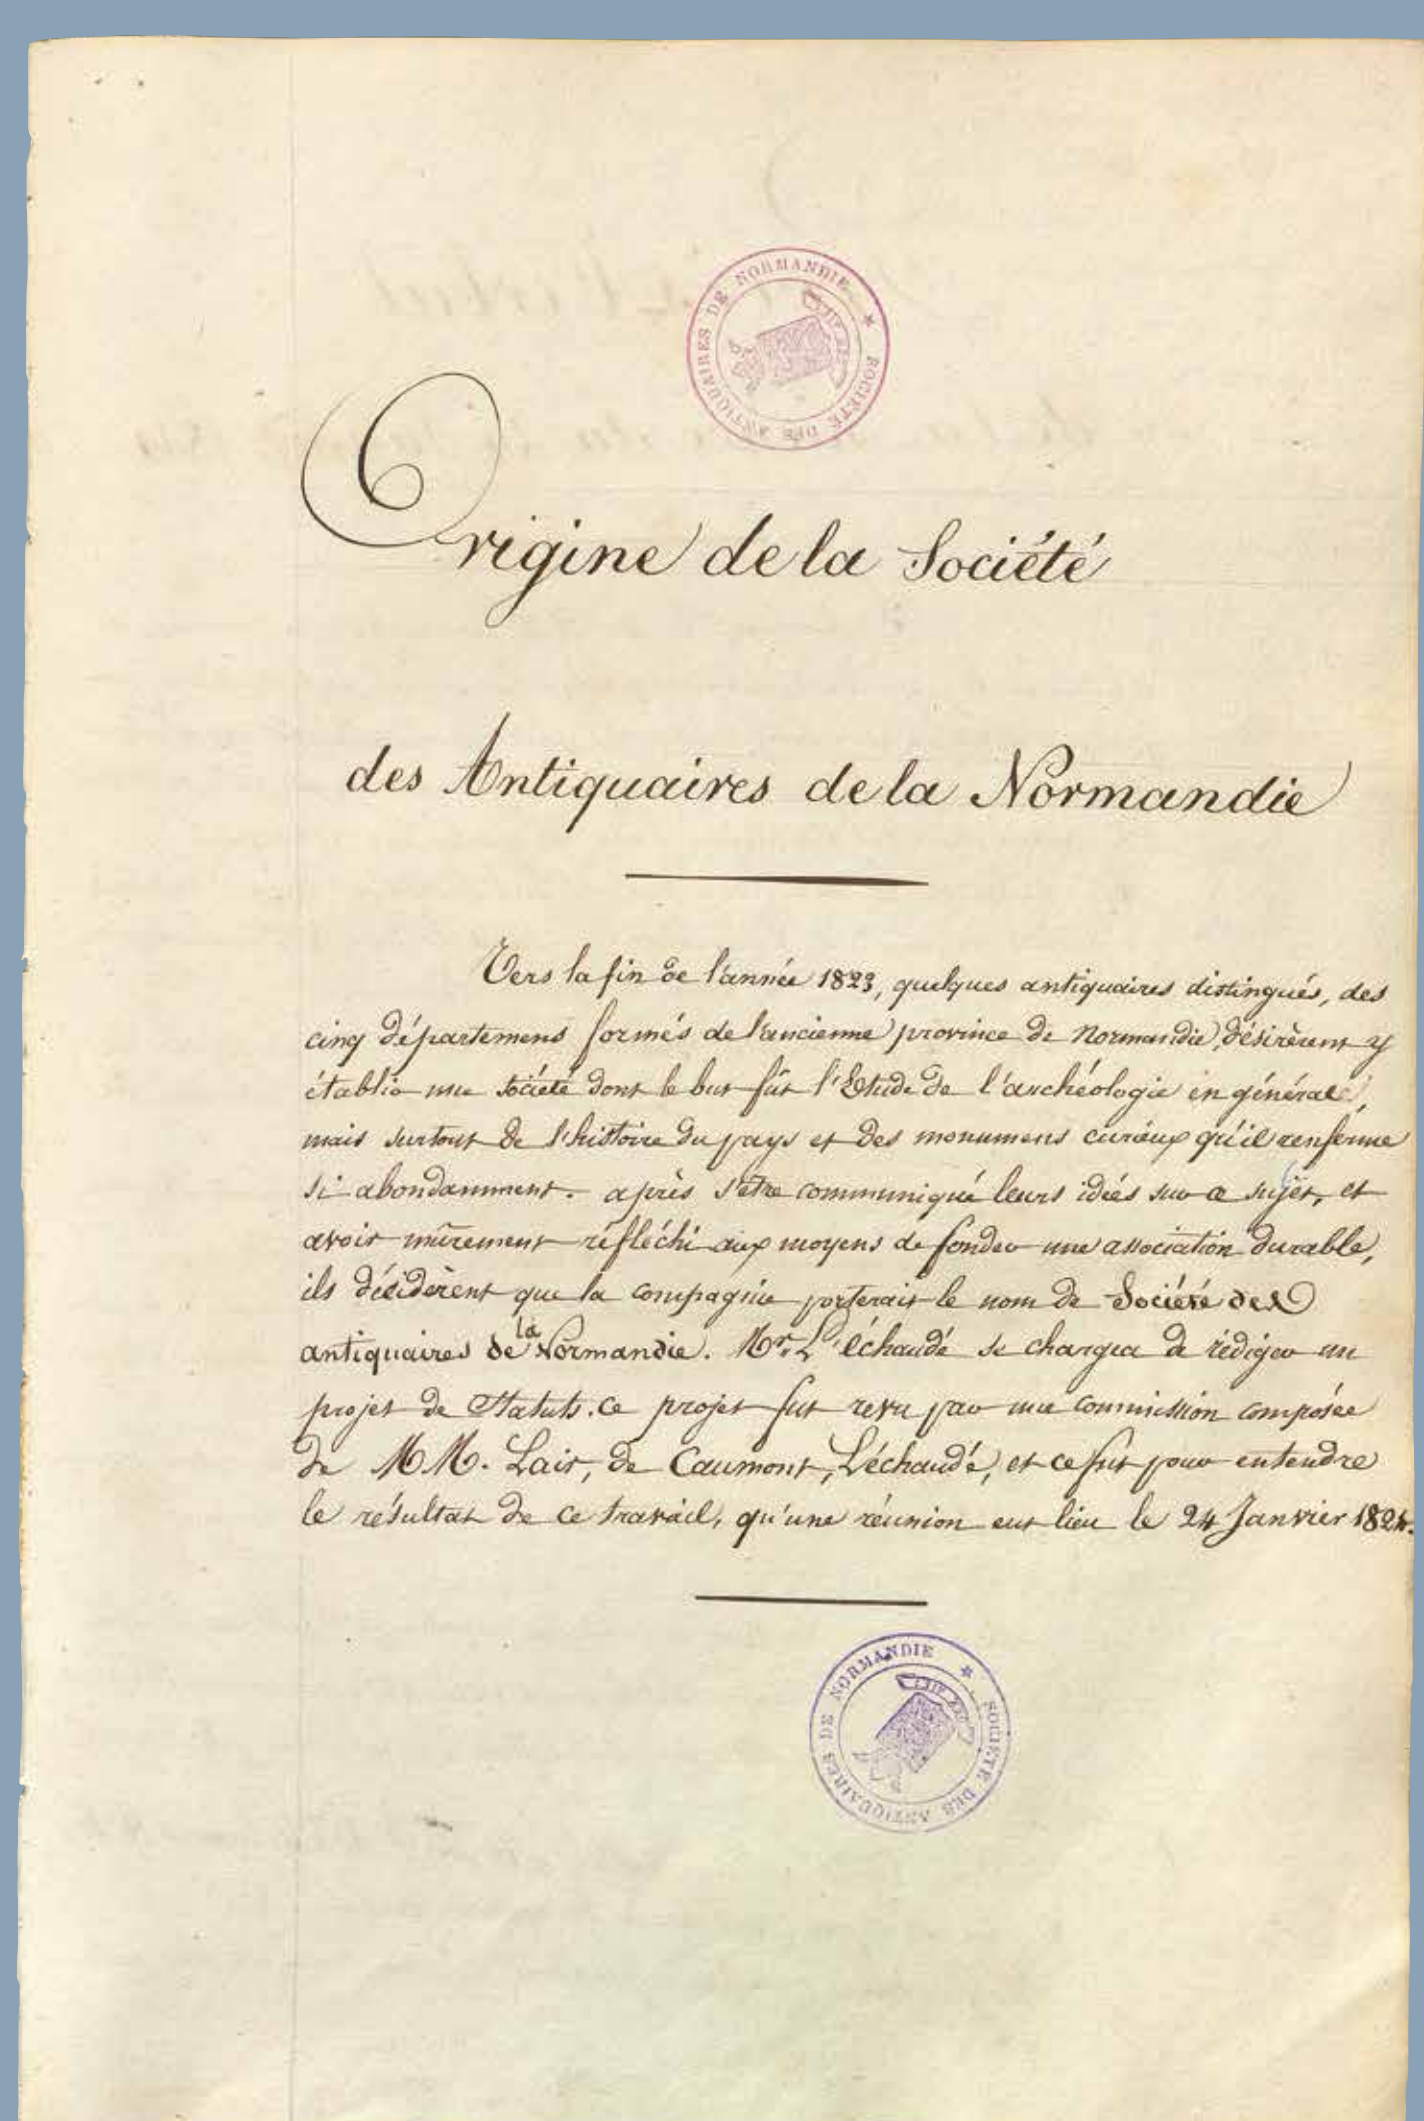 SOCIETE DES ANTIQUAIRES DE NORMANDIE ★
Origine de la Société
des Antiquaires de la Normandie
Vers la fin de l'année 1823, quelques antiquaires distingués, des
cinq départemens formés de l'ancienne province de Normandie, désirèrent y
établir une société dont le but fût l'Etude de l'archéologie en général,
mais surtout de l'histoire du pays et des monumens curieux qu'il renferme
si abondamment. après s'être communiqué leurs idées sur ce sujet, et
avoir mûrement réfléchi aux moyens de fonder une association durable,
ils décidèrent que la compagnie porterait le nom de Société des
antiquaires de la Normandie. Mr. L'échaudé se chargea de rédiger un
projet de Statuts. ce projet fut revu par une commission composée
de MM. Lair, de Caumont, L'échaudé, et ce fut pour entendre
le résultat de ce travail, qu'une réunion eut lieu le 24 Janvier 1824.
SOCIETE DES ANTIQUAIRES DE NORMANDIE ★